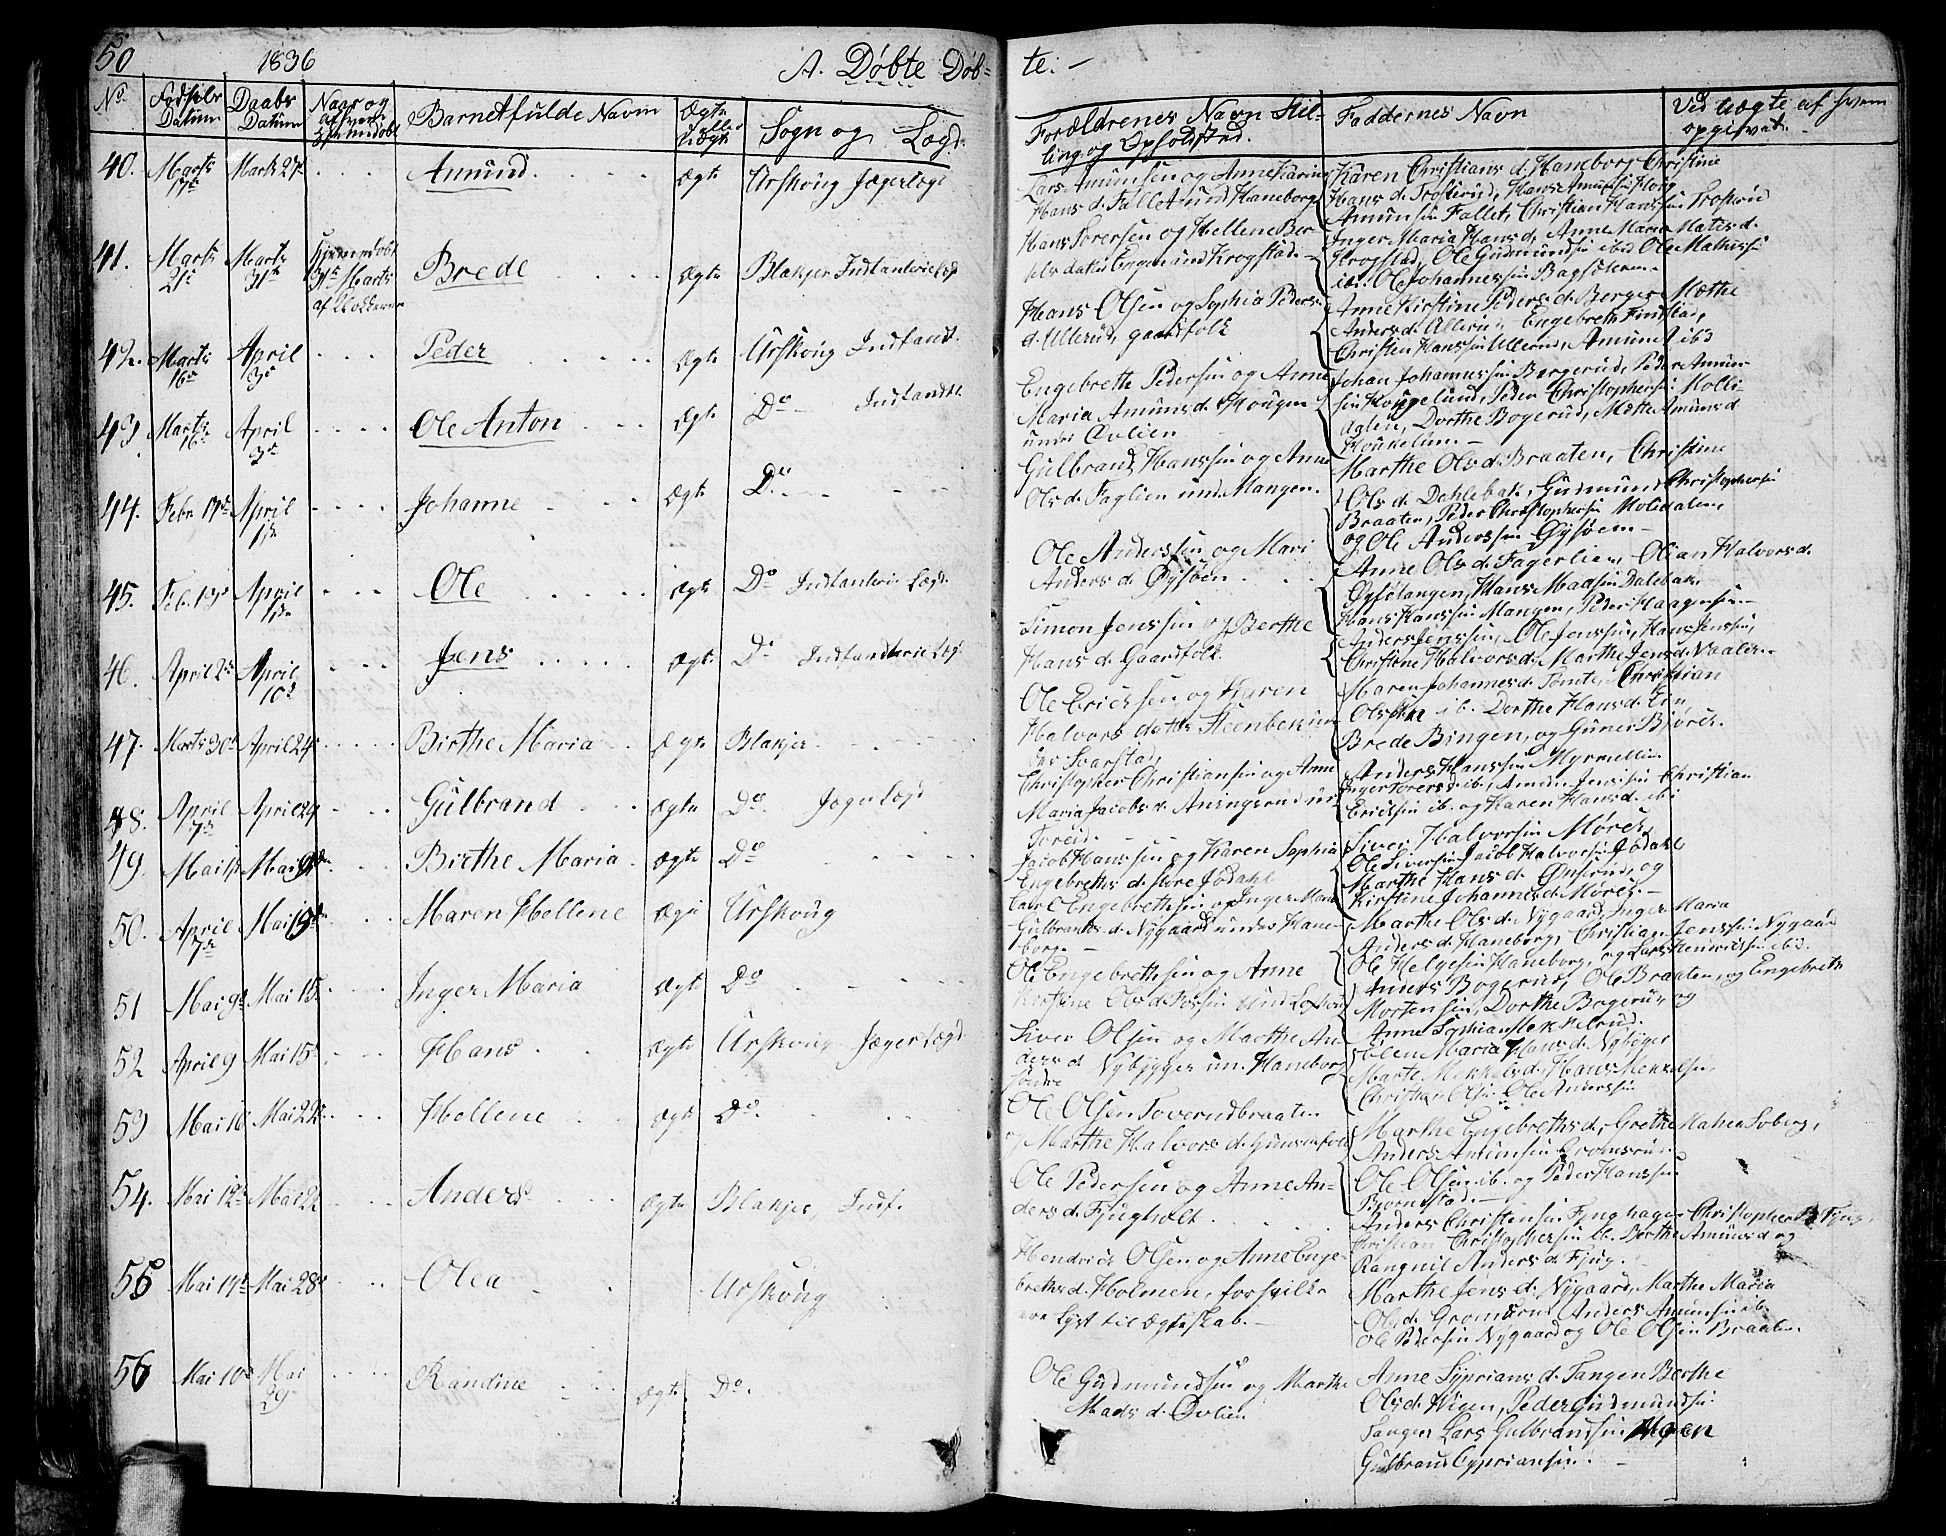 50 1836 A. Døbte Døb=
te: -
No. Fødsels Datum Daabs Datum Naar og af hvem hjemmedøbt Barnets fulde Navn Ægte eller uægte Sogn og Lægd.
Forældrenes Navn Stil-
ling og Opholdsted. Faddernes Navn Ved uægte af hvem
opgivet.
40. Marts 17de Marts 27. Amund Ægte Urskoug Jægerlægd
Lars Amunsen og Anne Karine
Hans d. Fallet und Haneborg
Karen Christians d. Haneborg Christine
Hans d. Troserud, Hans Amunsen
Amunsen Fallet, Christian Hanssen Troserud
41. Marts 21de Marts 31te Hjemmedøbt 31te Marts af Klokkeren Brede Ægte Blakjer Infanterie Lægd
Hans Torersen og Hellene Ber
Krogstad.
Inger Maria Hans d. Anne Maria Mats d.
Krogstad, Ole Gudmunsen ibid Ole Mathissen
ibi. Ole Johannessen Bagsteen.
42. Marts 16de April 3de Peder Ægte Urskoug Infant.
Hans Olsen og Sophia Peders
d. Ullerud, gaardfolk
Anne Kirstine Peders d. Berger Mæthe
Anders d. Ullerud Engebreth
Christen Hanssen Ullerud, Amund ibd
43. Marts 16de April 3de Ole Anton Ægte Do Infantr.
Engebrethe Pedersen og Anne
Maria Amunds d. Hougen
under Øvlien
Johan Johannessen Bergerud, Peder Amun
sen Kougelund, Peder Christophersen
Dorthe Bogerud, Mæthe Amunds d
44. Febr 19de April 1ste Johanne Ægte Do
Gulbrand Hanssen og Anne
Ols d. Faglien und Mangen.
Marthe Ols d. Braaten, Christine
Ols d. Dahlebak, Gudmund Christophersen
Braaten, Peder Christophersen
og Ole Anderssen Gysøen
45. Feb. 19de April 1ste Ole Ægte Do Infanterie Lægd
Ole Anderssen og Mari
Anders d. Øysøen
Anne Ols d. Fagerlien, Olian Halvors d.
Hans Madsen Dalebak
Hans Hanssen Mangen, Peder Haagensen
46. April 2de April 10de Jens Ægte Do Infanterie Lægd
Simon Jenssen og Berthe
Hans d. Gaardfolk.
Anders Jenssen, Ole Jenssen, Hans Jenssen,
Christine Halvors d. Marthe Jens d. Vaaler.
47. Marts 30te April 24de Birthe Maria Ægte Blakjer
Ole Ericssen og Karen
Halvors datter Steenbek un
der Svarstad,
Maren Johannes d. Tomte, Christian
Olssen ib. Dorthe Hans d. Lin
Brede Bingen, og Guner Bjører.
48. April 7de April 29 Gulbrand Ægte Do Jægerlægd
Christopher Christiansen og Anne
Maria Jacobs d. Aningsrud un
Toreid.
Anders Hanssen Myrmellin
Inger Torers d. ib., Amun Jenssen Christian
Ericssen ib. og Karen Hans d. ibi
49. Mai 1ste Mai 9de Birthe Maria Ægte Do
Jacob Hanssen og Karen Sophia
Engebreths d. store Jødahl
Siver Halvorsen Mørch
Ole Siversen Jacob Halvorsen Jødahl
Marthe Hans d. og
Kirstine Johannes d. Mørch.
50. April 7de Mai 19de Maren Hellene Ægte Urskoug
Carl Engebrethsen og Inger Maria
Gulbrands d. Nygaard under Hane-
borg.
Marthe Ols d. Nygaard, Inger Maria
Anders d. Haneborg, Christian Jenssen Nygaard
Ole Helgesen Haneborg, og Lars Hendricsen ibid.
51 Mai 9de Mai 15. Inger Maria Ægt Do
Ole Engebrethsen og Anne
Kirstine Ols d.
Anders Bogerud, Ole Braaten, og Engebreth
Mortensen, Dorthe Bogerud og
Anne Sophia
52 April 9 Mai 15 Hans Ægte Urskoug Jægerlægd
Siver Olsen og Marthe An-
ders d Nybygger un. Haneborg
søndre
Ellen Maria Hans d. Nybøger
Marte Mikkels d. Hans Mikkelsen
Christian Olsen Ole Anderssen
53 Mai 10 Mai 22 Hellene Ægte Do.
Ole Olsen Toverudbraaten
og Marthe Halvors d.
Marthe Engebreths d. Grethe Mathea Soberg,
Anders Amunsen
Ole Olsen ib. og Peder Hanssen
Bjørnestad.
54. Mai 12 Mai 22 Anders Ægte Blakjer, Inf.
Ole Pedersen og Anne An-
ders d. Fjugholt.
Anders Christensen Fjughagen Christopher Fjug,
Christian Christophersen ib. Berthe Amunds d og
Rangnil Anders d. Fjug.
55 Mai 17 Mai 28 Olea Urskoug
Hendric Olsen og Anne Enge-
breths d. Holmen, forhvilke
lyst til Ægteskab.
Marthe Jens d. Nygaard, Marthe Maria
Ols d. Anders Amunsen ib.
Ole Pedersen Nygaard og Ole Olsen Braaten.
56 Mai 10 Mai 29 Randine Ægte Do.
Ole Gudmundsen og Marthe
Mads d. Øvlien
Anne Syprians d. Tangen Berthe
Ols d. Wigen, Peder Gudmundsen
Tangen Lars Gulbrandsen Moen
Gulbrand Cypriansen.